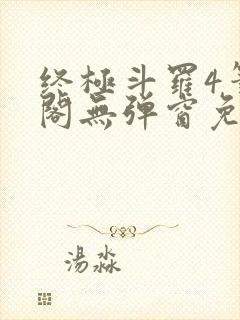 終極斗羅4筆
閣無彈窗免
湯淼